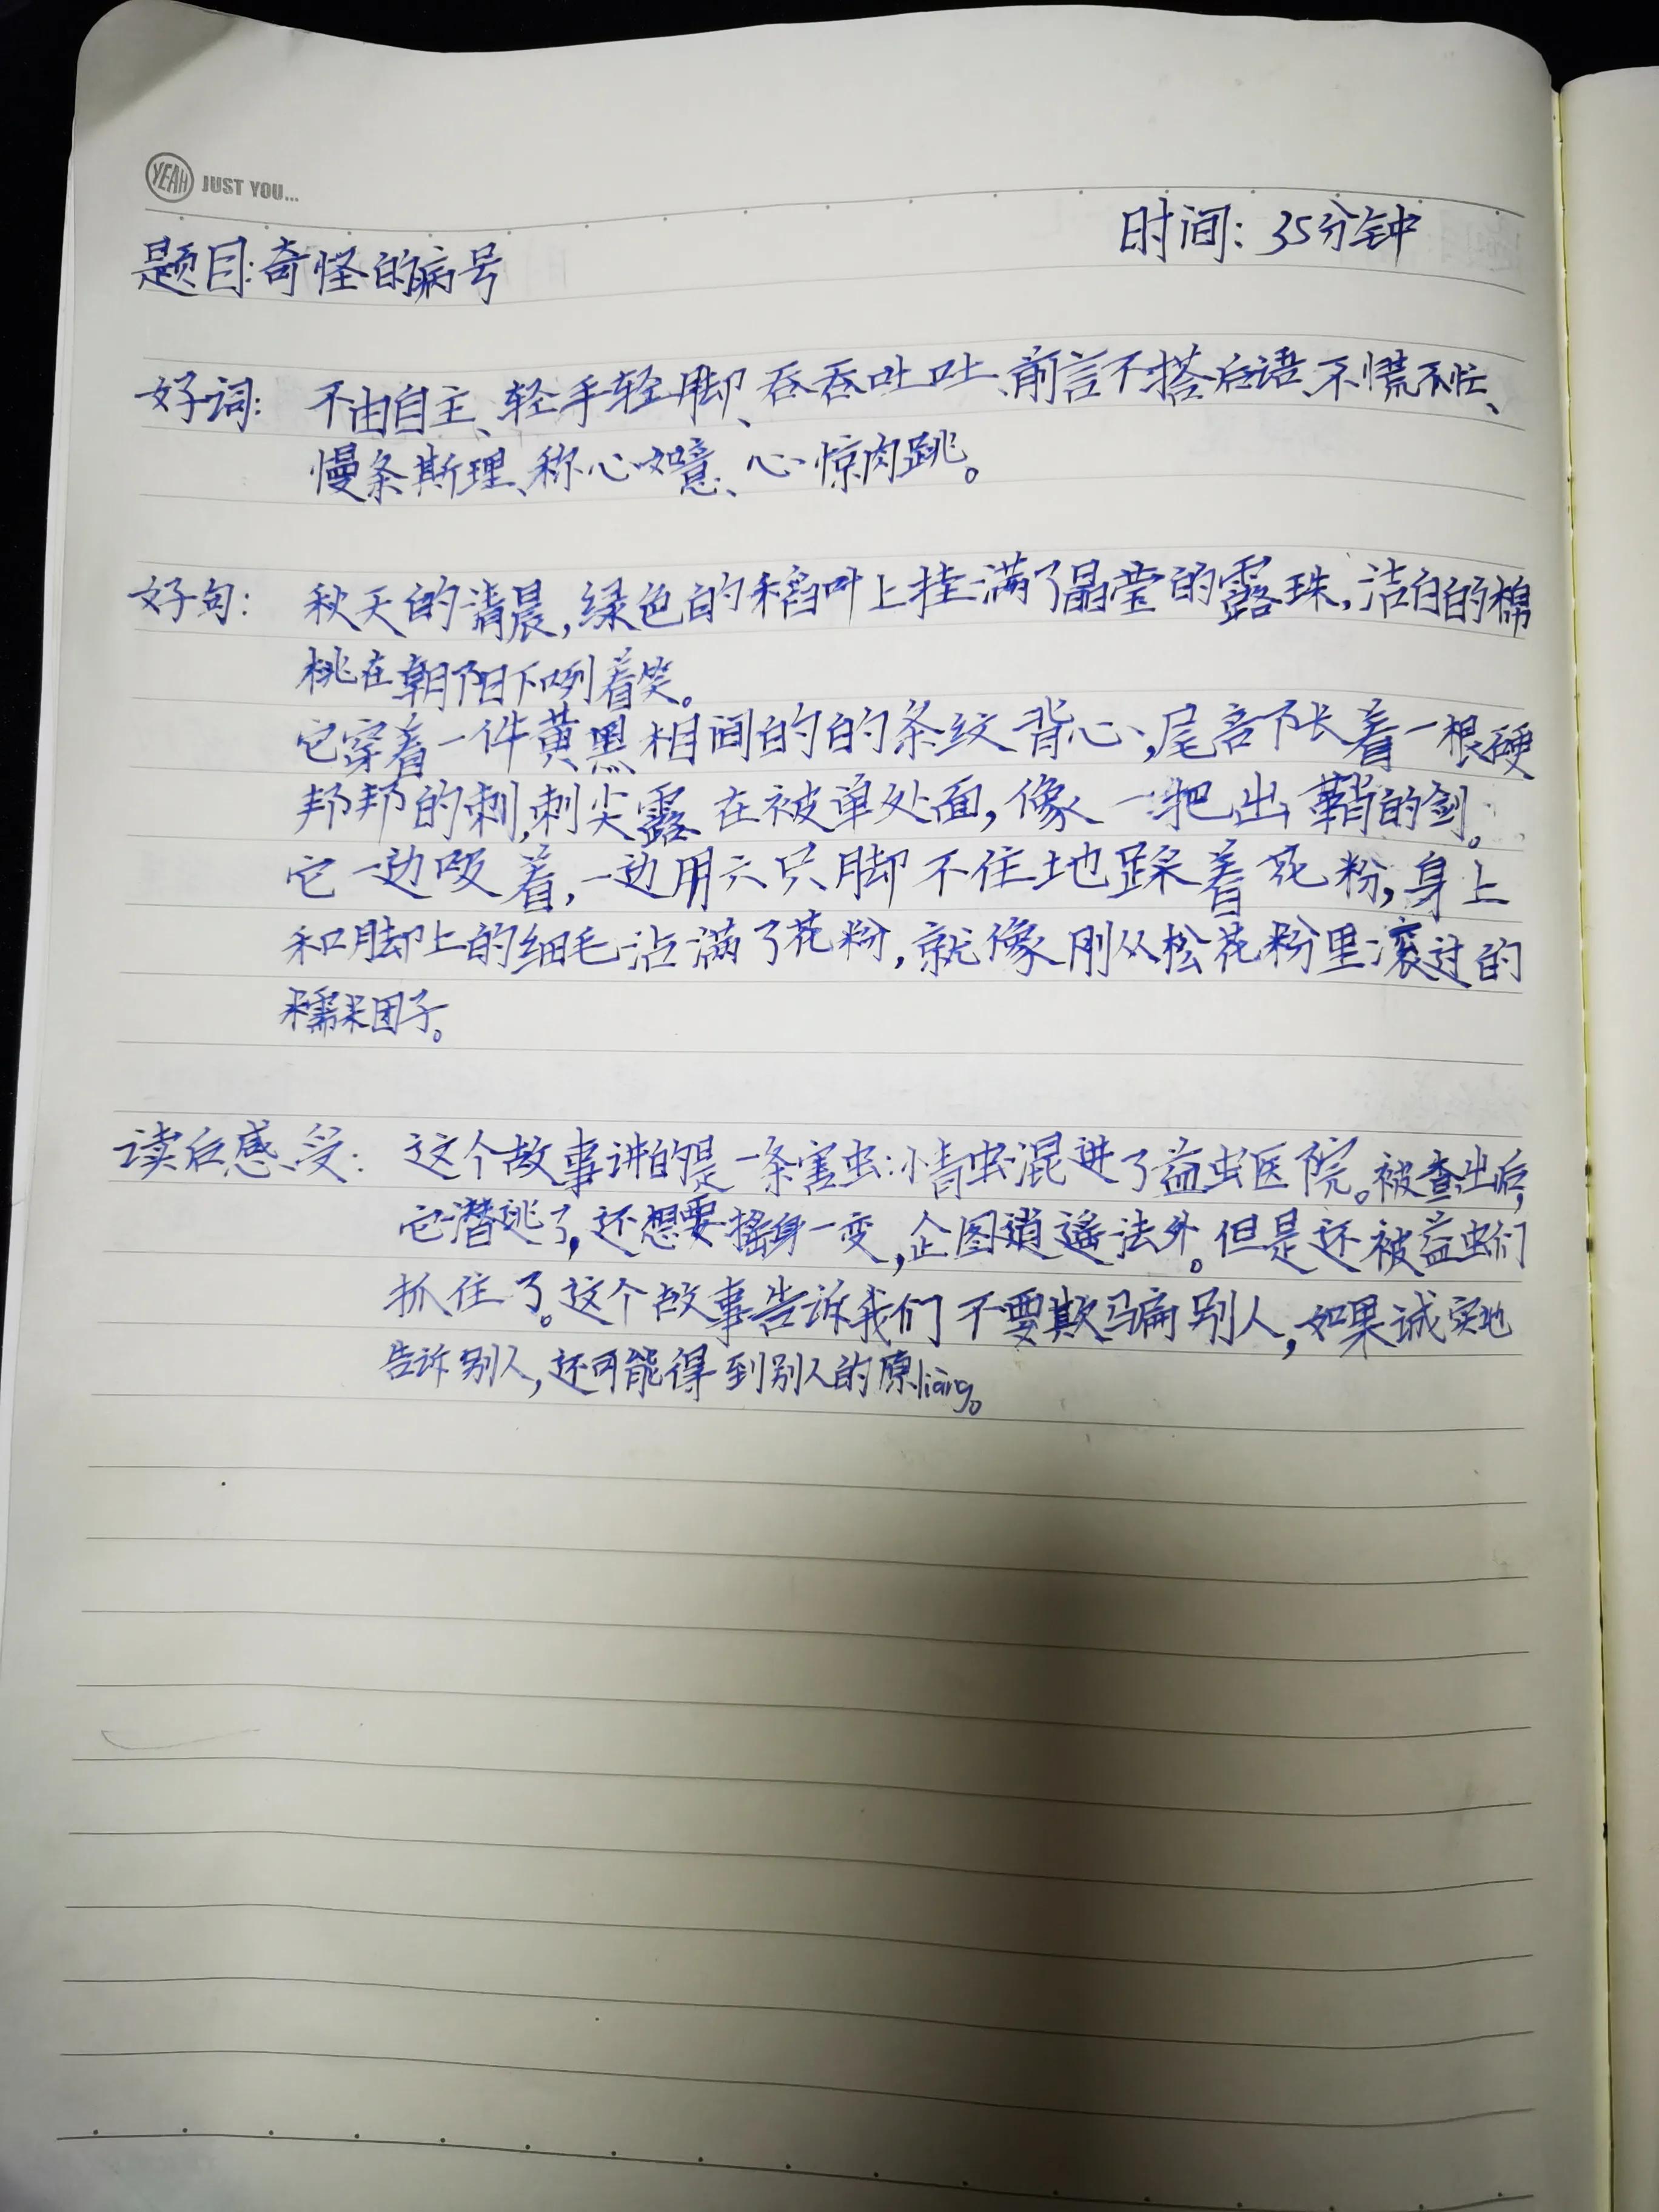 YEAH JUST YOU...
时间：35分钟
题目：奇怪的病号
好词：不由自主、轻手轻脚、吞吞吐吐、前言不搭后语、不慌不忙、
慢条斯理、称心如意、心惊肉跳。
好句：秋天的清晨，绿色的稻叶上挂满了晶莹的露珠，洁白的棉
桃在朝阳下咧着笑。
它穿着一件黄黑相间的的条纹背心，尾部下长着一根硬
邦邦的刺，刺尖露在被单处面，像一把出鞘的剑。
它一边吸着，一边用六只脚不住地踩着花粉，身上
和脚上的细毛沾满了花粉，就像刚从松花粉里滚过的
糯米团子。
读后感受：这个故事讲的是一条害虫：小青虫混进了益虫医院。被查出后，
它潜逃了，还想要摇身一变，企图逍遥法外。但是还被益虫们
抓住了。这个故事告诉我们不要欺骗别人，如果诚实地
告诉别人，还可能得到别人的原liàng。